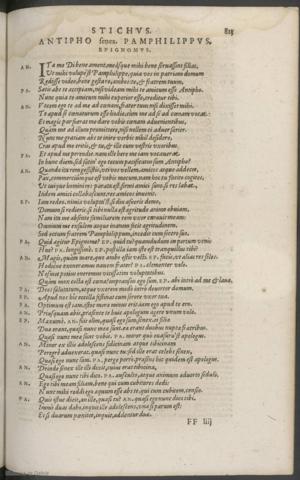 STICHVS. 818
ANTIPHO senex. PAMPHILIPPVS,
EPIGNOMVS.
AN. ITa me Di bene ament, meásque mihi bene seruassint filias,
Vt mihi volup'st Pamphilippe, quia vos in patriam domum
Redisse video, bene gesta re, ambos, te, & fratrem tuum,
PA. Satis abs te accipiam, nisi videam mihi te amicum esse Antipho.
Nunc quia te amicum mihi experior esse, creditur tibi.
AN. Vocem ego te ad me ad cœnam, frater tuus nisi dixisset mihi,
Te apud se cœnaturum esse hodie, cùm me ad se ad cœnam vocat.
Et magis par fuerat me dare vobis cœnam aduenientibus,
Quàm me ad illum promittere, nisi nollem ei aduersarier.
Nunc me gratiam abs te inire verbis nihil desidero,
Cras apud me eritis, & tu, & ille cum vestris vxoribus.
PA. Et apud me perendie. nam ille here me iam vocauerat
In hunc diem, sed satin' ego tecum pacificatus sum, Antipho?
AN. Quando ita rem gessistis, vti vos vellem, amicos atque addecet,
Pax, commercium que est vobis mecum, nam hoc tu facito cogites,
Vt cuique homini res parata est firmi amici sunt: si res labat,
Itidem amici collabascunt, res amicos inuenit.
EP. Iam redeo. nimia voluptas'st si diu abfueris domo,
Domum si redieris, si tibi nulla est ægritudo animo obuiam,
Nam ita me absente familiarem rem vxor curauit meam:
Omnium me exilem atque inanem fecit ægritudinem.
Sed eccum fratrem Pamphilippum, incedit cum socero suo,
PA. Quid agitur Epignome? EP. quid tu? quamdudum in portum venis?
Huc? PA. longissimè. EP. postilla iam iste est tranquillus tibi?
AN. Magis, quàm mare, quo ambo estis vecti. EP. facis, vt alias res soles.
Hodiéne exoneramus nauem frater? PA. clementer volo.
Nos potius oneremus nosmetipsos voluptatibus.
Quàm mox cocta est cœna? impransus ego sum, EP. abi intrò ad me & laua.
PA. Deos salutatum, atque vxorem modò intrò deuortor domum,
EP. Apud nos hic
PA. Optimum est
AN. Priusquam abis, præsente te huic apologum agere vnum volo.
EP. Maxumè. AN. fuit olim, quasi ego sum, senex: ei filiæ
Duæ erant, quasi nunc meæ sunt. eæ erant duobus nuptæ fratribus,
Quasi nunc meæ sunt vobis. PA. miror quò euasuru'st apologus.
AN. Minor ex illis adulescens fidicinam atque tibicinam
Peregrè aduexerat, quasi nunc tu: sed ille erat cælebs senex,
Quasi ego nunc sum. PA. perge porrò. præsens hic quidem est apologus.
AN. Deinde senex ille illi dixit, cuius erat tibicina,
Quasi ego nunc tibi dico. PA. ausculto, atque animum aduorto sedulò,
AN. Ego tibi meam filiam, bene qui cum cubitares dedi:
Nunc mihi reddi ego æquum esse abs te, qui cum cubitem, censeo.
PA. Quis istuc dicit, an ille, quasi tu? AN. quasi ego nunc dico tibi.
Immò duas dabo, inquit ille adulescens, vna si parum est:
Et si duarum pœnitet, inquit, addentur duæ.
FF iiij